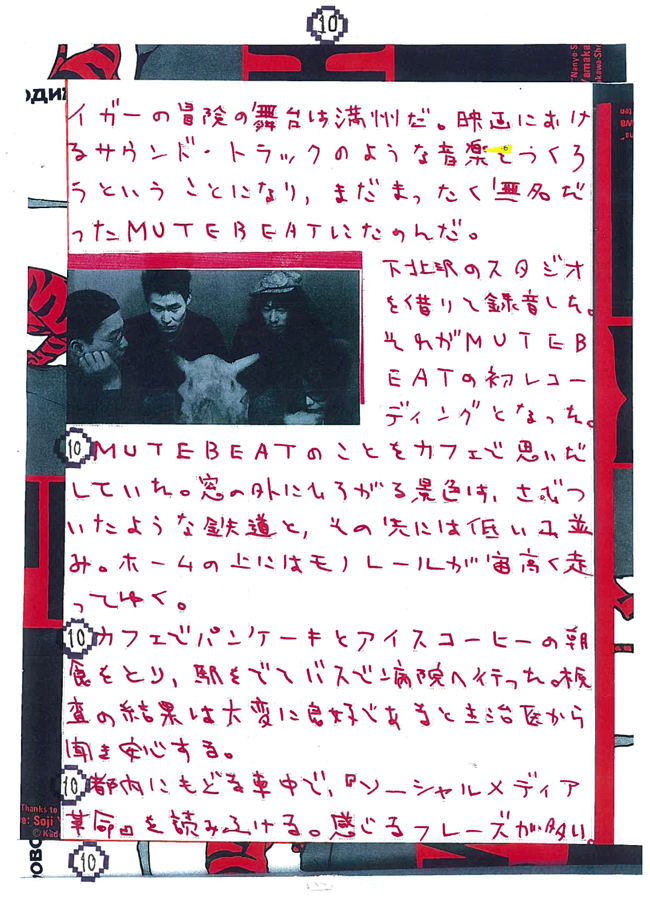 10
イガーの冒険の舞台は満州だ。映画におけ
るサウンド・トラックのような音楽をつくろ
うということになり,まだまったく無名だ
ったMUTEBEATにたのんだ。
下北沢のスタジオ
を借りて録音した。
それがMUTEB
EATの初レコー
ディングとなった。
10 MUTEBEATのことをカフェで思いだ
していた。窓の外にひろがる景色は,さびつ
いたような鉄道と,その先には低い山並
み。ホームの上にはモノレールが宙高く走
ってゆく。
10 カフェでパンケーキとアイスコーヒーの朝
食をとり,駅をでてバスで病院へ行った。検
査の結果は大変に良好であると主治医から
聞き安心する。
10 都内にもどる車中で,『ソーシャルメディア
革命』を読みふける。感じるフレーズが多い。
10
Thanks to
Soji